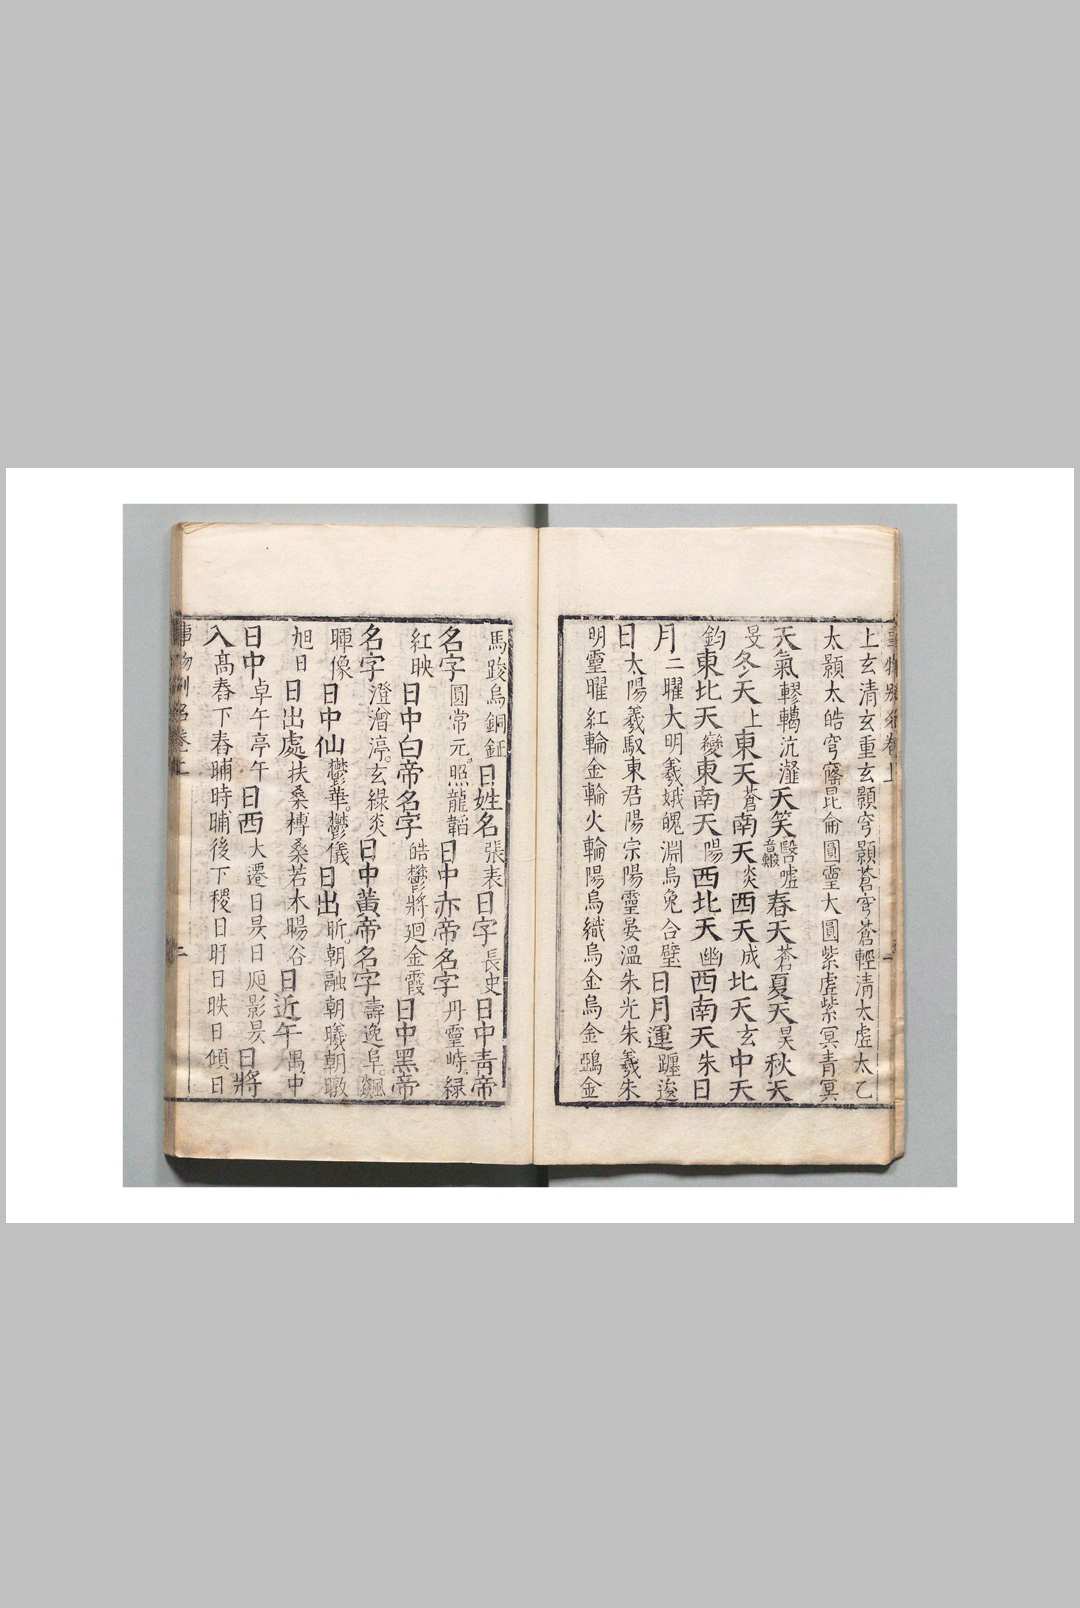 上玄清玄重玄顥穹顥蒼穹蒼輕清太虛太乙
太顥太皓穹窿昆侖圓靈大圓紫虛紫冥青冥
天氣轇轕沆瀣天笑噎噓春天蒼夏天昊秋天
旻冬天上東天蒼南天炎西天成北天玄中天
鈞東北天變東南天陽西北天幽西南天朱日
月二曜大明羲娥魄淵烏兔合璧日月運躔逡
日太陽羲馭東君陽宗陽靈晏溫朱光朱羲朱
明靈曜紅輪金輪火輪陽烏織烏金烏金鵶金
馬踆烏銅鉦日姓名張表日字長史日中青帝
名字圓常元照龍韜日中赤帝名字丹靈峙綠
紅映日中白帝名字皓鬱將廻金霞日中黑帝
名字澄潧渟玄綠炎日中黃帝名字壽逸阜飆
暉像日中仙鬱華鬱儀日出昕朝融朝曦朝暾
旭日日出處扶桑榑桑若木暘谷日近午禺中
日中卓午亭午日西大遷日昃日𣅳影昃日將
入高舂下舂晡時晡後下稷日旴日昳日傾日